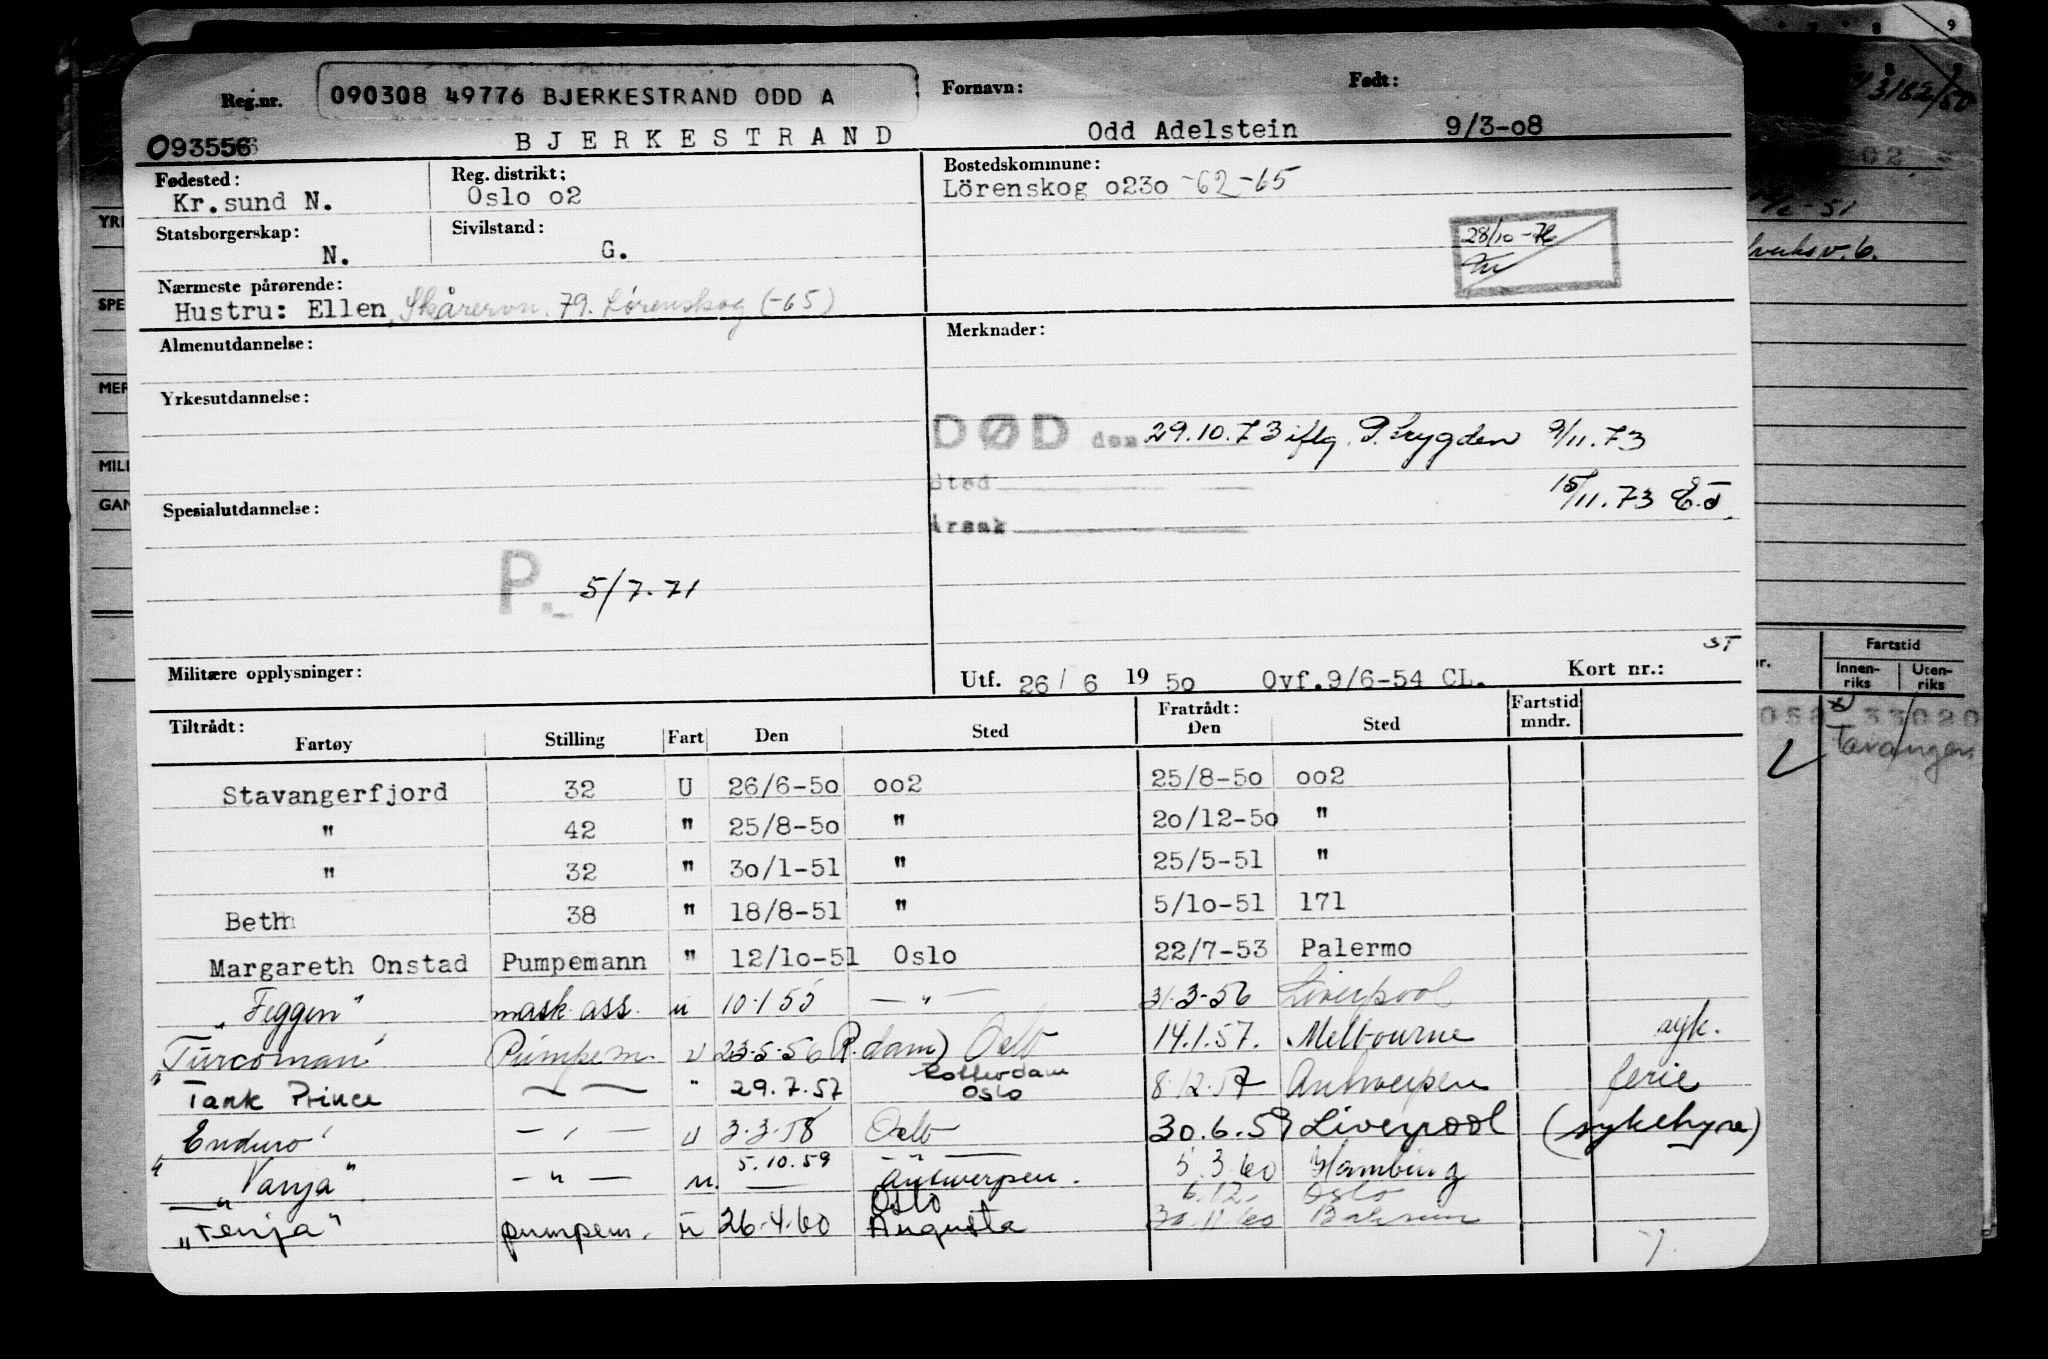 Reg.nr. 090308 49776 BJERKESTRAND ODD A Fornavn: Født:
093556 BJERKESTRAND Odd Adelstein 9/3-o8
Fødested: Reg. distrikt: Bostedskommune:
Kr.sund N. Oslo o2 Lörenskog o23o -62-65
Statsborgerskap: Sivilstand: 28/10-72
N. G.
Nærmeste pårørende:
Hustru: Ellen, Skårervn. 79. Lørenskog (-65)
Almenutdannelse: Merknader:
Yrkesutdannelse:
DØD den 29.10.73 iflg. P. Trygden 9/11.73
Sted 15/11.73 E.J.
Årsak
Spesialutdannelse:
P. 5/7.71
ST
Militære opplysninger: Utf. 26/6 19 5o Ovf.9/6-54 CL. Kort nr.:
Tiltrådt: Fratrådt: Fartstid
Fartøy Stilling Fart Den Sted Den Sted mndr.
Stavangerfjord 32 U 26/6-5o oo2 25/8-5o oo2
" 42 " 25/8-5o " 2o/12-5o "
" 32 " 3o/1-51 " 25/5-51 "
Beth 38 " 18/8-51 " 5/1o-51 171
Margareth Onstad Pumpemann " 12/1o-51 Oslo 22/7-53 Palermo
"Feggen" mask. ass. u 10.1 55 — " — 31.3-56 Liverpool
"Turcoman" Pumpem. u 23.5-56 (R.dam) Oslo 14.1.57. Melbourne syk.
"Tank Prince — — " 29.7.57 Rotterdam Oslo 8.12.57 Antwerpen ferie
Enduro" — " — u 3.3.58 Oslo 30.6.59 Liverpool (sykehyre)
"Vanja" — " — u. 5.10.59 Antwerpen. 5.3.60 Hamburg
— " — Oslo 6.12. Oslo
"Tenja" pumpem. u 26.4.60 Augusta 30.11.60
YR
SPE
MER
MIL
GAN
3182/50
02
-51
v. 6.
Fartstid
Innen-riks Uten-riks
33020